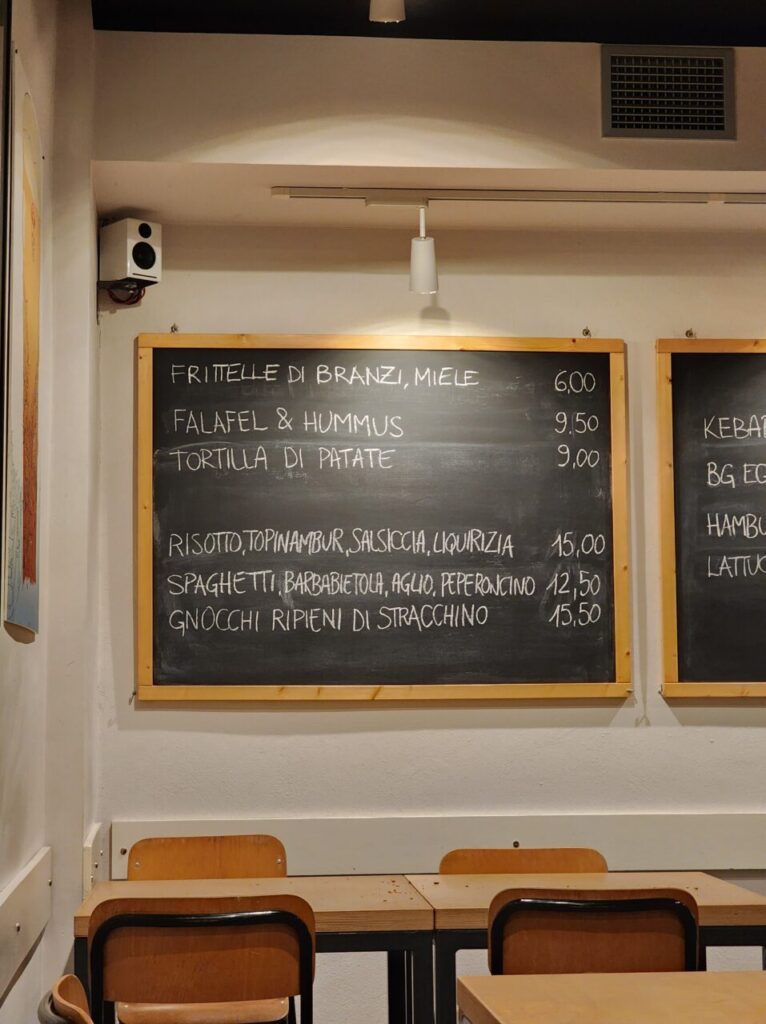 FRITTELLE DI BRANZI, MIELE 6,00
FALAFEL & HUMMUS 9,50
TORTILLA DI PATATE 9,00
RISOTTO, TOPINAMBUR, SALSICCIA, LIQUIRIZIA 15,00
SPAGHETTI, BARBABIETOLA, AGLIO, PEPERONCINO 12,50
GNOCCHI RIPIENI DI STRACCHINO 15,50
BG